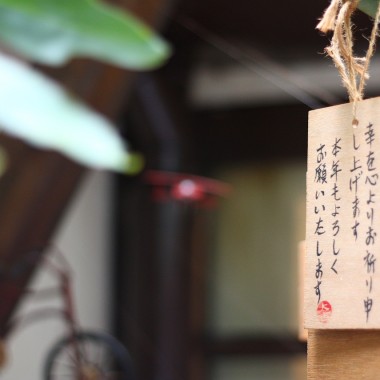 幸を心よりお祈り申
し上げます
本年もよろしく
お願いいたします